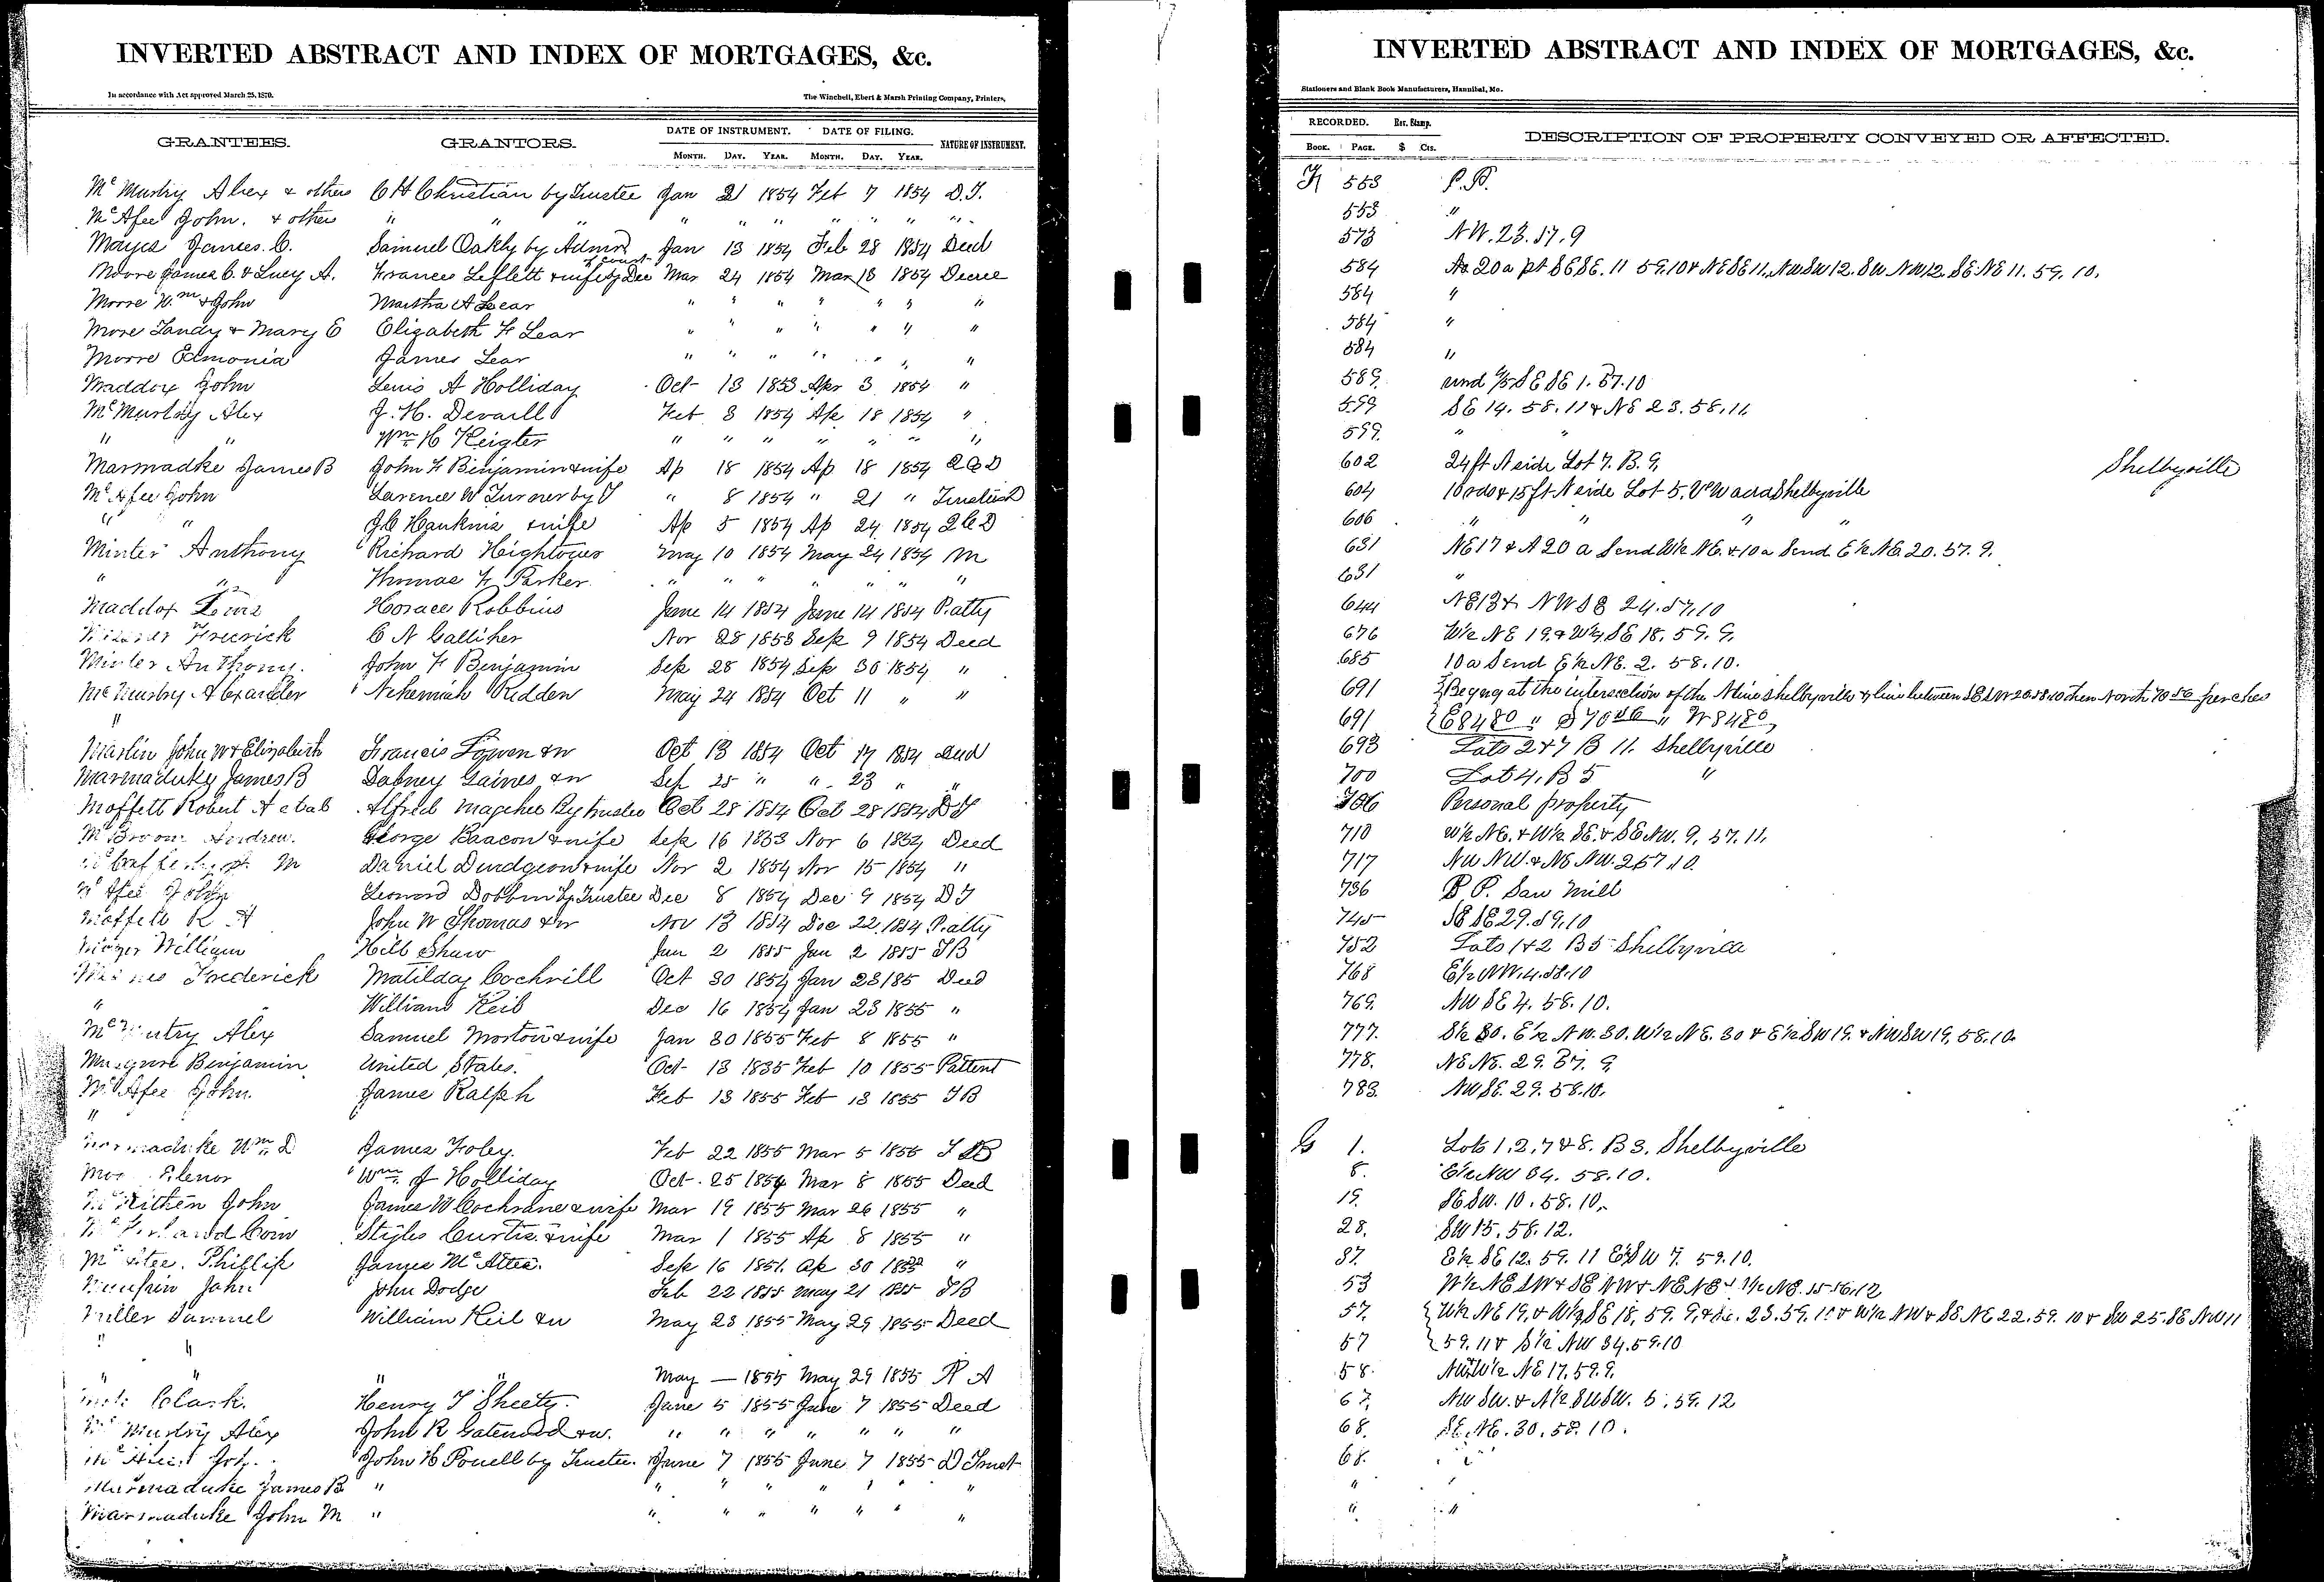 INVERTED ABSTRACT AND INDEX OF MORTGAGES, &c.
In accordance with Act approved March 25, 1870.
The Winchell, Ebert & Marsh Printing Company, Printers,
GRANTEES. GRANTORS. DATE OF INSTRUMENT. DATE OF FILING. NATURE OF INSTRUMENT.
MONTH. DAY. YEAR. MONTH. DAY. YEAR.
McMurtry Alex & others C H Christian by Trustee Jan 21 1854 Feb 7 1854 D.T.
McAfee John. & others " " " " " " " " " "
Mayes James. C. Samuel Oakly by Admr Jan 13 1854 Feb 28 1854 Deed
Moore James C. & Lucy A. Frances Leflett & wife by Dec Mar 24 1854 Mar 18 1854 Decree
Moore Wm & John Martha A Lear " " " " " " "
More Tandy & Mary E Elizabeth F Lear " " " " " " "
Moore Edmonia James Lear " " " " " " "
Maddox John Lewis A Holliday Oct 13 1853 Apr 3 1854 "
McMurtry Alex J. H. Devaill Feb 3 1854 Ap 18 1854 "
" " Wm H Keigler " " " " " " "
Marmadke James B John F Benjamin & wife Ap 18 1854 Ap 18 1854 Q C D
McAfee John Larence W Turner by T " 8 1854 " 21 " Trusteed
" " J C Hankins & wife Ap 5 1854 Ap 24 1854 Q C D
Minter Anthony Richard Hightower May 10 1854 May 24 1854 M
" " Thomas F Parker " " " " " " "
Maddox Horace Robbins June 14 1854 June 14 1854 P.atty
Frederick C N Galliher Nov 28 1853 Sep 9 1854 Deed
Minter Anthony. John F Benjamin Sep 28 1854 Sep 30 1854 "
McMurtry Alexander Nehemiah Redden May 24 1854 Oct 11 " "
"
Martin John W & Elizabeth Francis & w Oct 13 1854 Oct 17 1854 Deed
Marmaduke James B Dabney Gaines & w Sep 25 " " 23 " "
Moffett Robert A et al Alfred Magehee By trustee Oct 28 1854 Oct 28 1854 D T
McBroom Andrew. George Baacon & wife Sep 16 1853 Nov 6 1854 Deed
M Daniel Dudgeon & wife Nov 2 1854 Nov 15 1854 "
McAfee John Leonard Dobbin by Trustee Dec 8 1854 Dec 9 1854 D T
Moffett R A John W Thomas & w Nov 13 1854 Dec 22 1854 P.atty
William Hill Shaw Jan 2 1855 Jan 2 1855 T B
Frederick Matilday Cochrill Oct 30 1854 Jan 23 185 Deed
" William Keil Dec 16 1854 Jan 23 1855 "
McMurtry Alex Samuel Morton & wife Jan 30 1855 Feb 8 1855 "
Benjamin United States. Oct 13 1835 Feb 10 1855 Pattent
McAfee John. James Ralph Feb 13 1855 Feb 13 1855 T B
"
Marmaduke Wm D James Foley. Feb 22 1855 Mar 5 1855 T B
Elenor Wm J Holliday Oct. 25 1854 Mar 8 1855 Deed
John James W Cochrane & wife Mar 19 1855 Mar 26 1855 "
Styles Curtis & wife Mar 1 1855 Ap 8 1855 "
Phillip James McAttee. Sep 16 1851 Ap 30 1855 "
John John Dodge Feb 22 1855 May 21 1855 T B
Miller Samuel William Keil & w May 23 1855 May 29 1855 Deed
" "
" " " " May — 1855 May 29 1855 R A
Clark. Henry T Sheetz. June 5 1855 June 7 1855 Deed
McMurtry Alex John R Gatewood & w. " " " " " " "
John H Powell by Trustee. June 7 1855 June 7 1855 D Trust
Marmaduke James B " " " " " " " "
Marmaduke John M " " " " " " " "
INVERTED ABSTRACT AND INDEX OF MORTGAGES, &c.
Stationers and Blank Book Manufacturers, Hannibal, Mo.
RECORDED. Rev. Stamp. DESCRIPTION OF PROPERTY CONVEYED OR AFFECTED.
BOOK. PAGE. $ Cts.
553 P.P.
553 "
573 NW. 23. 57. 9
584 20a pt SESE. 11 59.10 & NESE 11. NWSW 12. SW NW 12. SE NE 11. 59. 10.
584 "
584 "
584 "
589. und 1/5 SE SE 1. 57.10
599 SE 14. 58. 11 & NE 23. 58. 11.
599. " "
602 24 ft N side Lot 7. B. 9. Shelbyville
604 10 rds & 15 ft N side Lot 5. Shelbyville
606 " " " "
631 NE 17 & A 20 a Send W½ NE. & 10 a Send E½ NE. 20. 57. 9.
631 "
644 NE 13 & NWSE 24. 57. 10
676 W½ NE 19. & W½ SE 18. 59. 9.
685 10 a Send E½ NE. 2. 58. 10.
691 Begng at the intersection of the N line Shelbyville & line between SE & SW 20.58.10 then North 70 56 perches
691 E 84 80 " S 70 56 " W 84 80
693 Lots 2 & 7 B 11. Shelbyville
700 Lot 4. B 5 "
706 Personal property
710 W½ NE. & W½ SE. & SENW. 9. 57. 11.
717 NW NW. & NE NW. 2 57 10.
736 P P. Saw Mill
745 SE SE 29. 59. 10
752 Lots 1 & 2 B 5 Shelbyville
768 E½ NW. 4. 58. 10
769. NW SE 4. 58. 10.
777. S½ 30. E½ NW. 30. W½ NE. 30 & E½ SW 19. & NWSW 19. 58. 10.
778. NE NE. 29. 57. 9
783. NWSE. 29. 58. 10.
G 1. Lots 1. 2. 7 & 8. B 3. Shelbyville
8. E½ NW 34. 58. 10.
19. SE SW. 10. 58. 10.
28. SW 15. 58. 12.
37. E½ SE 12. 59. 11 E½ SW 7. 59. 10.
53 W½ NE SW & SE NW & NE NE & W½ NE. 15 56. 12
57. W½ NE 19. & W½ SE 18. 59. 9. & 23. 59. 10 & W½ NW & SE NE 22. 59. 10 & SW 25. SE NW 11
57 59. 11 & S½ NW 34. 59. 10
58. NE 17. 59. 9.
67. NW SW. & N½ SWSW. 5. 59. 12
68. SE NE. 30. 58. 10.
68. "
" "
" "